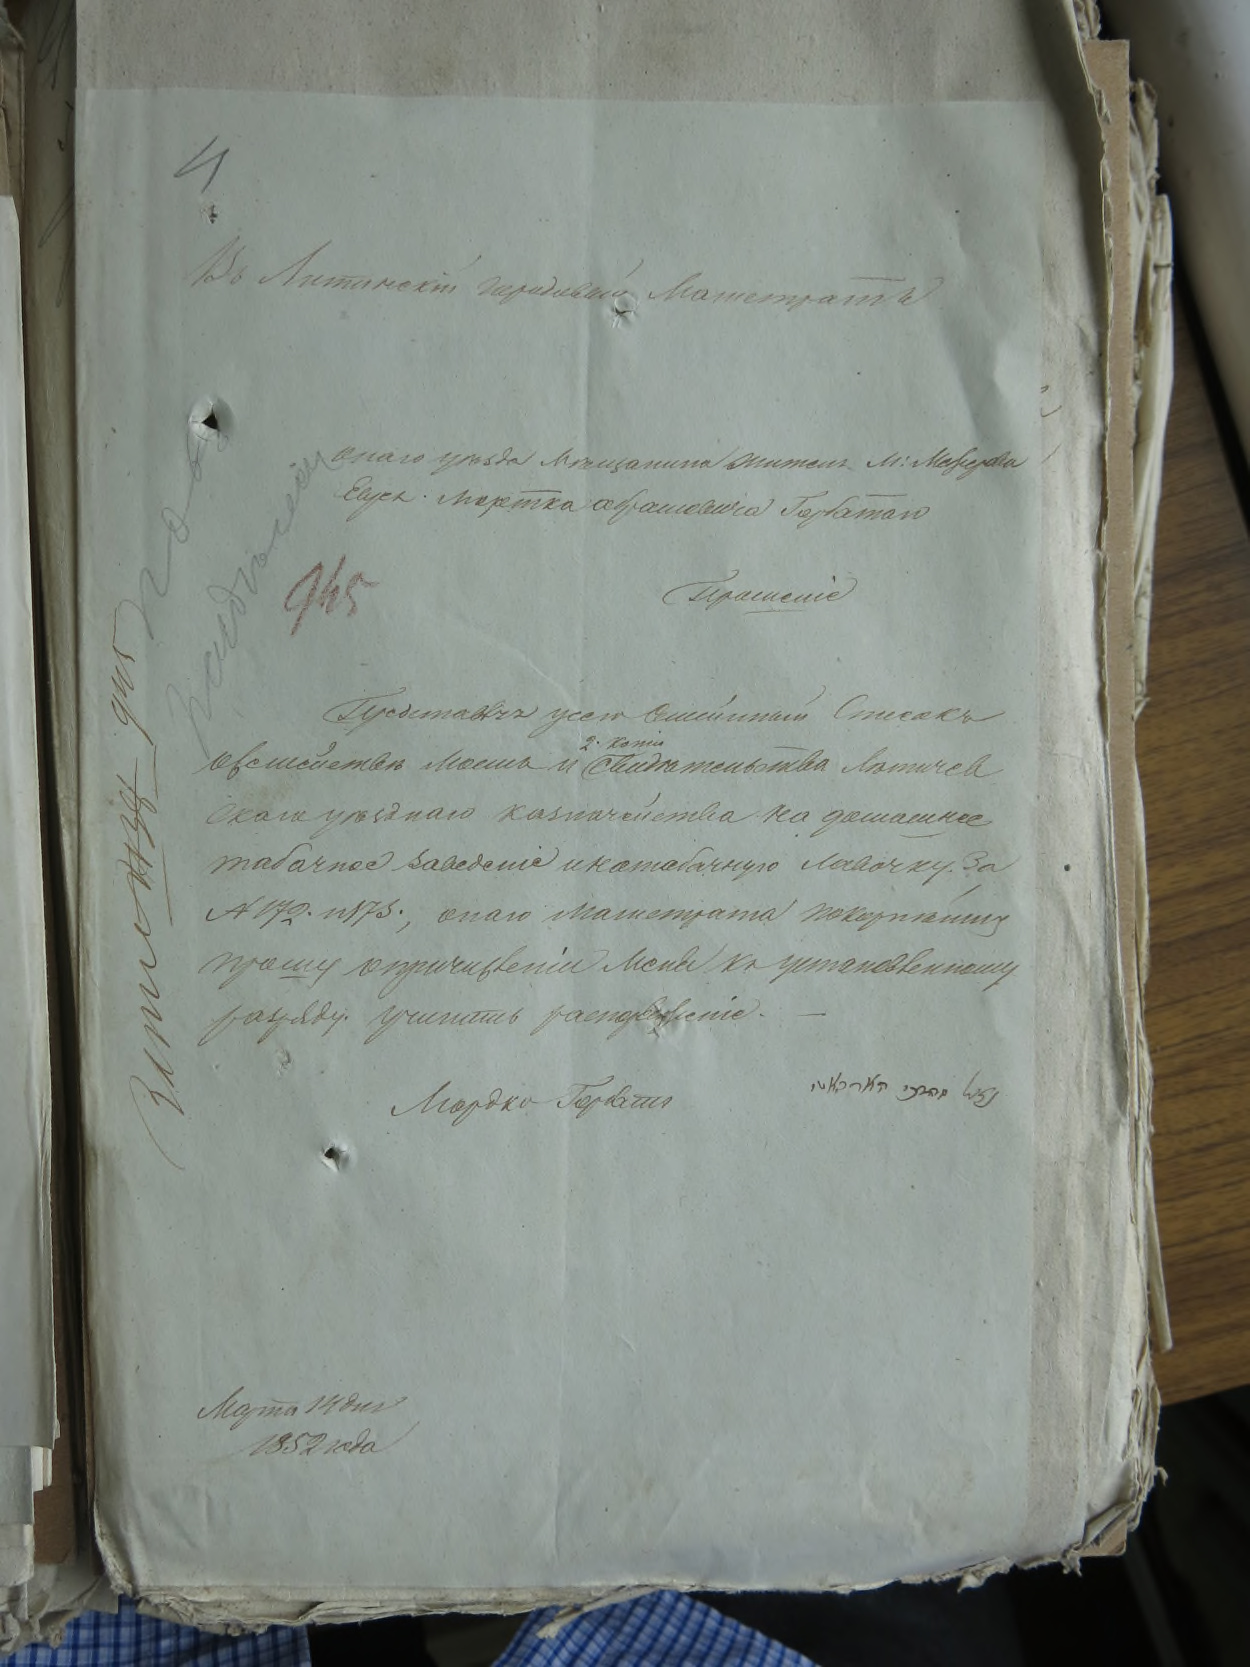 Въ Литинскій городовый Магистратъ
онаго уѣзда Мѣщанина жителя М:
Еврея Мортка Абрамовича Горбатаго
945
Прошеніе
Представляя при семъ Семейный Списокъ
2. копіи
о семействѣ моемъ и Свидѣтельства Летичев
скаго уѣзднаго казначейства на домашнее
табачное заведеніе и на табачную лавочку за
№ 172. и 173., онаго Магистрата покорнѣйше
прошу о причисленіи меня къ установленному
разряду. учинить распоряженіе. —
Мордко Горбатый
Марта 14 дня
1852 года